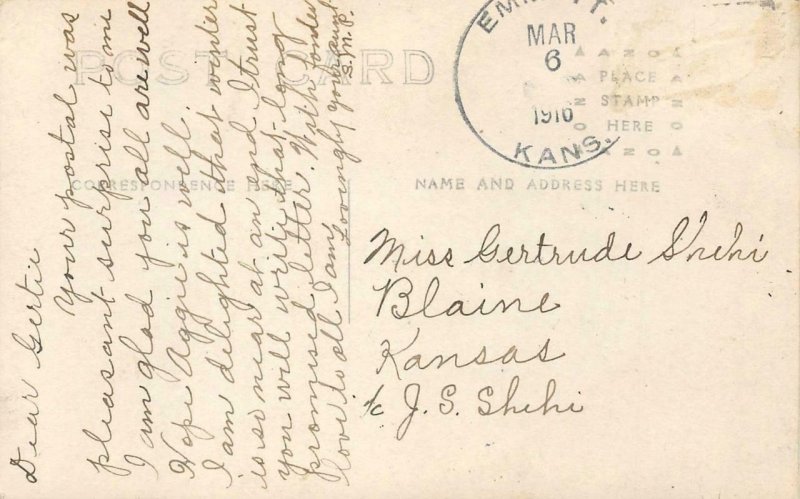 POST CARD
CORRESPONDENCE HERE
NAME AND ADDRESS HERE
PLACE
STAMP
HERE
AZO
MAR
6
1916
KANS.
Dear Gertie
Your postal was
pleasant surprise to me
I am glad you all are well
Hope Aggie is well.
I am delighted that winter
is so near at an end. I trust
you will write that long
promised letter. With fondest
love to all I am
Lovingly your aunt
S.M.P.
Miss Gertrude Shehi
Blaine
Kansas
c/o J. S. Shehi